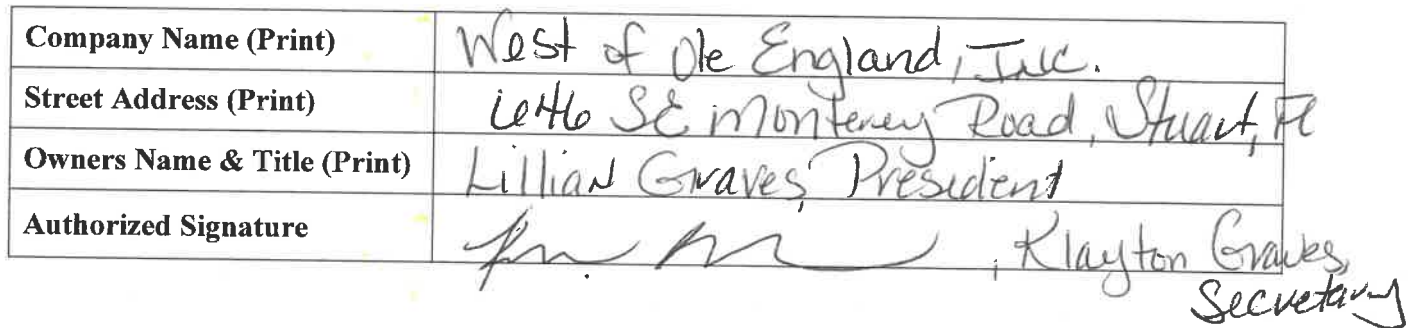 Company Name (Print) West of Ole England, Inc.
Street Address (Print) 646 SE Monterey Road, Stuart, Fl
Owners Name & Title (Print) Lillian Graves, President
Authorized Signature , Klayton Graves,
Secretary